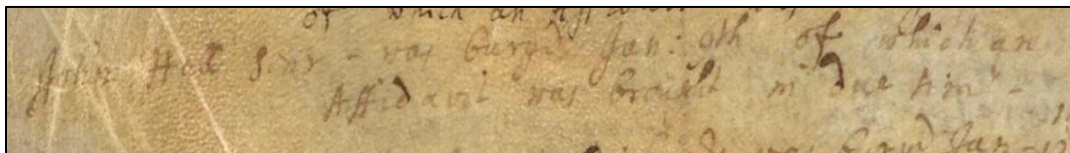 of which an Affidavit was
John Hall Senr - was buryd Jan: 9th of which an
Affidavit was brought in due time -
was buryd Jan - 12